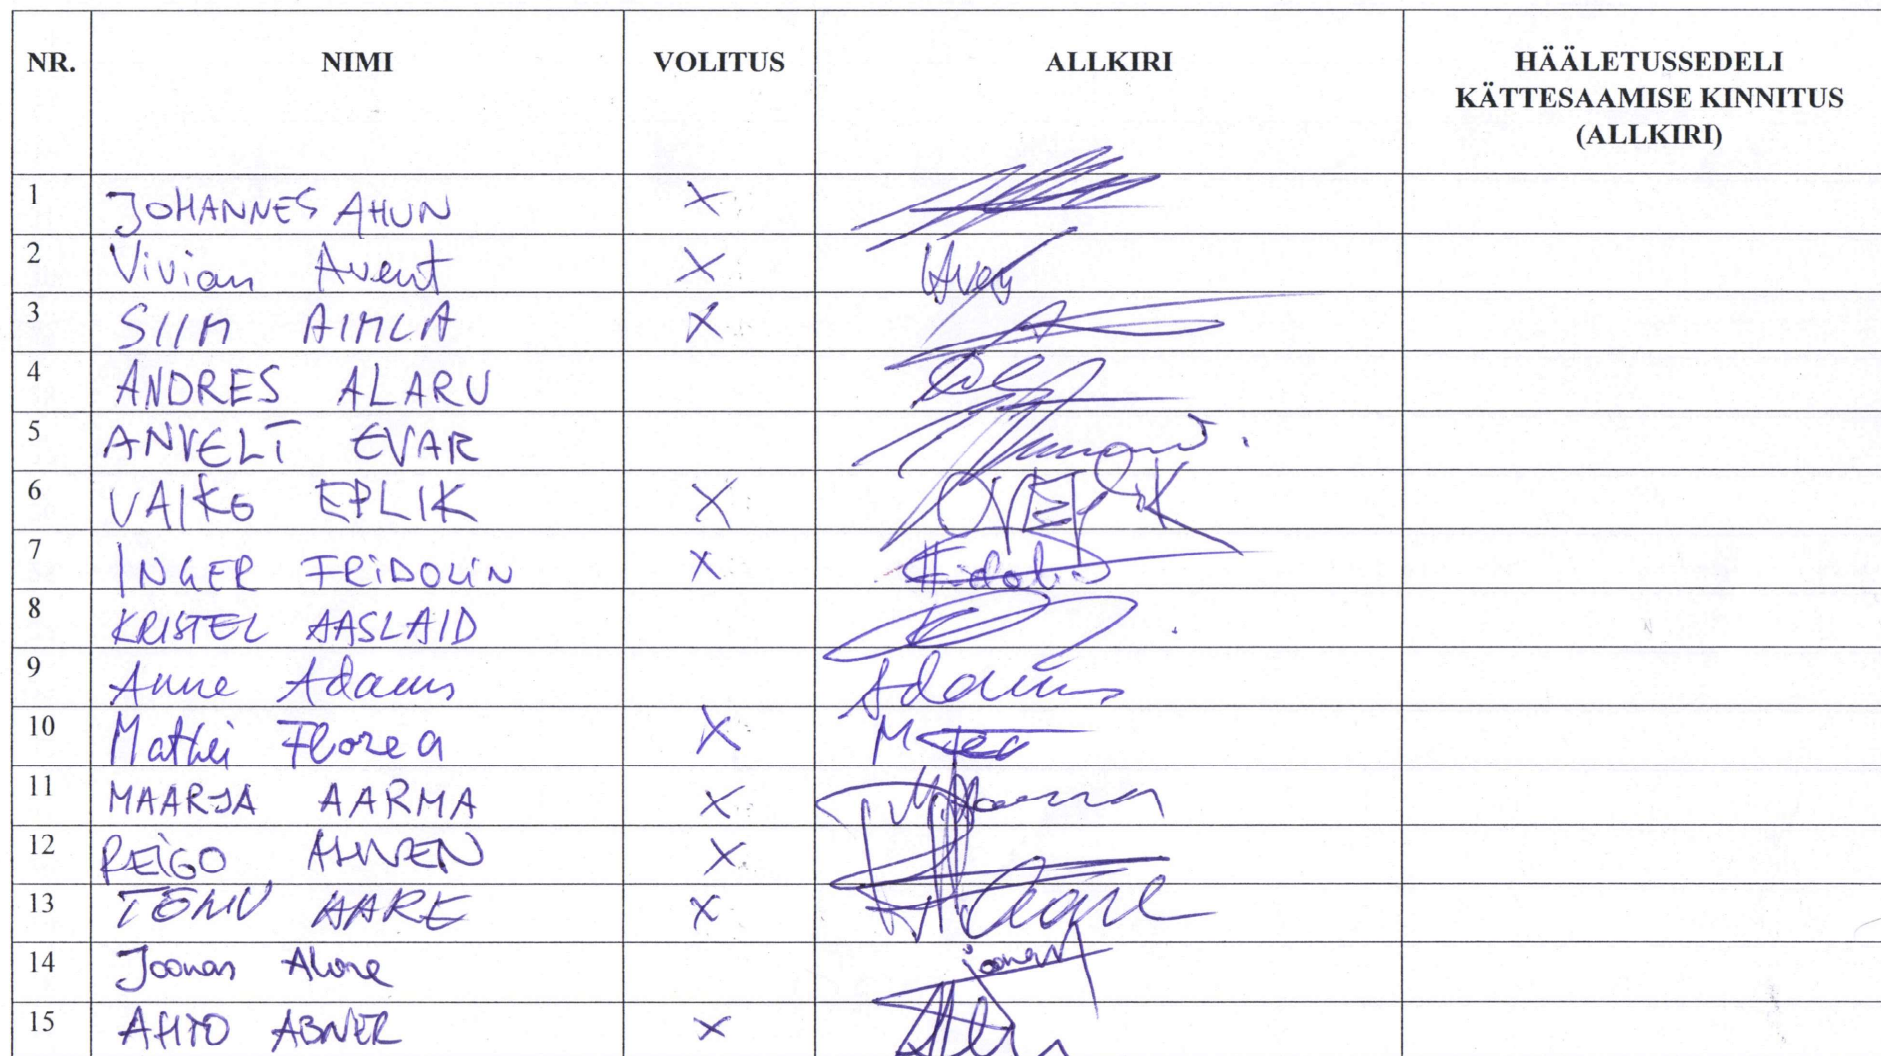 NR. NIMI VOLITUS ALLKIRI HÄÄLETUSSEDELI
KÄTTESAAMISE KINNITUS
(ALLKIRI)
1 JOHANNES AHUN X
2 Vivian Avent X
3 SIIM AIMLA X
4 ANDRES ALARU
5 ANVELT EVAR
6 VAIKO EPLIK X OVEPLIK
7 INGER FRIDOLIN X Fridolin
8 KRISTEL AASLAID
9 Anne Adams Adams
10 Mathei Florea X
11 MAARJA AARMA X
12 REIGO AHVEN X
13 TÕNU AARE X Aare
14 Joonas Joonas
15 AHTO ABNER X